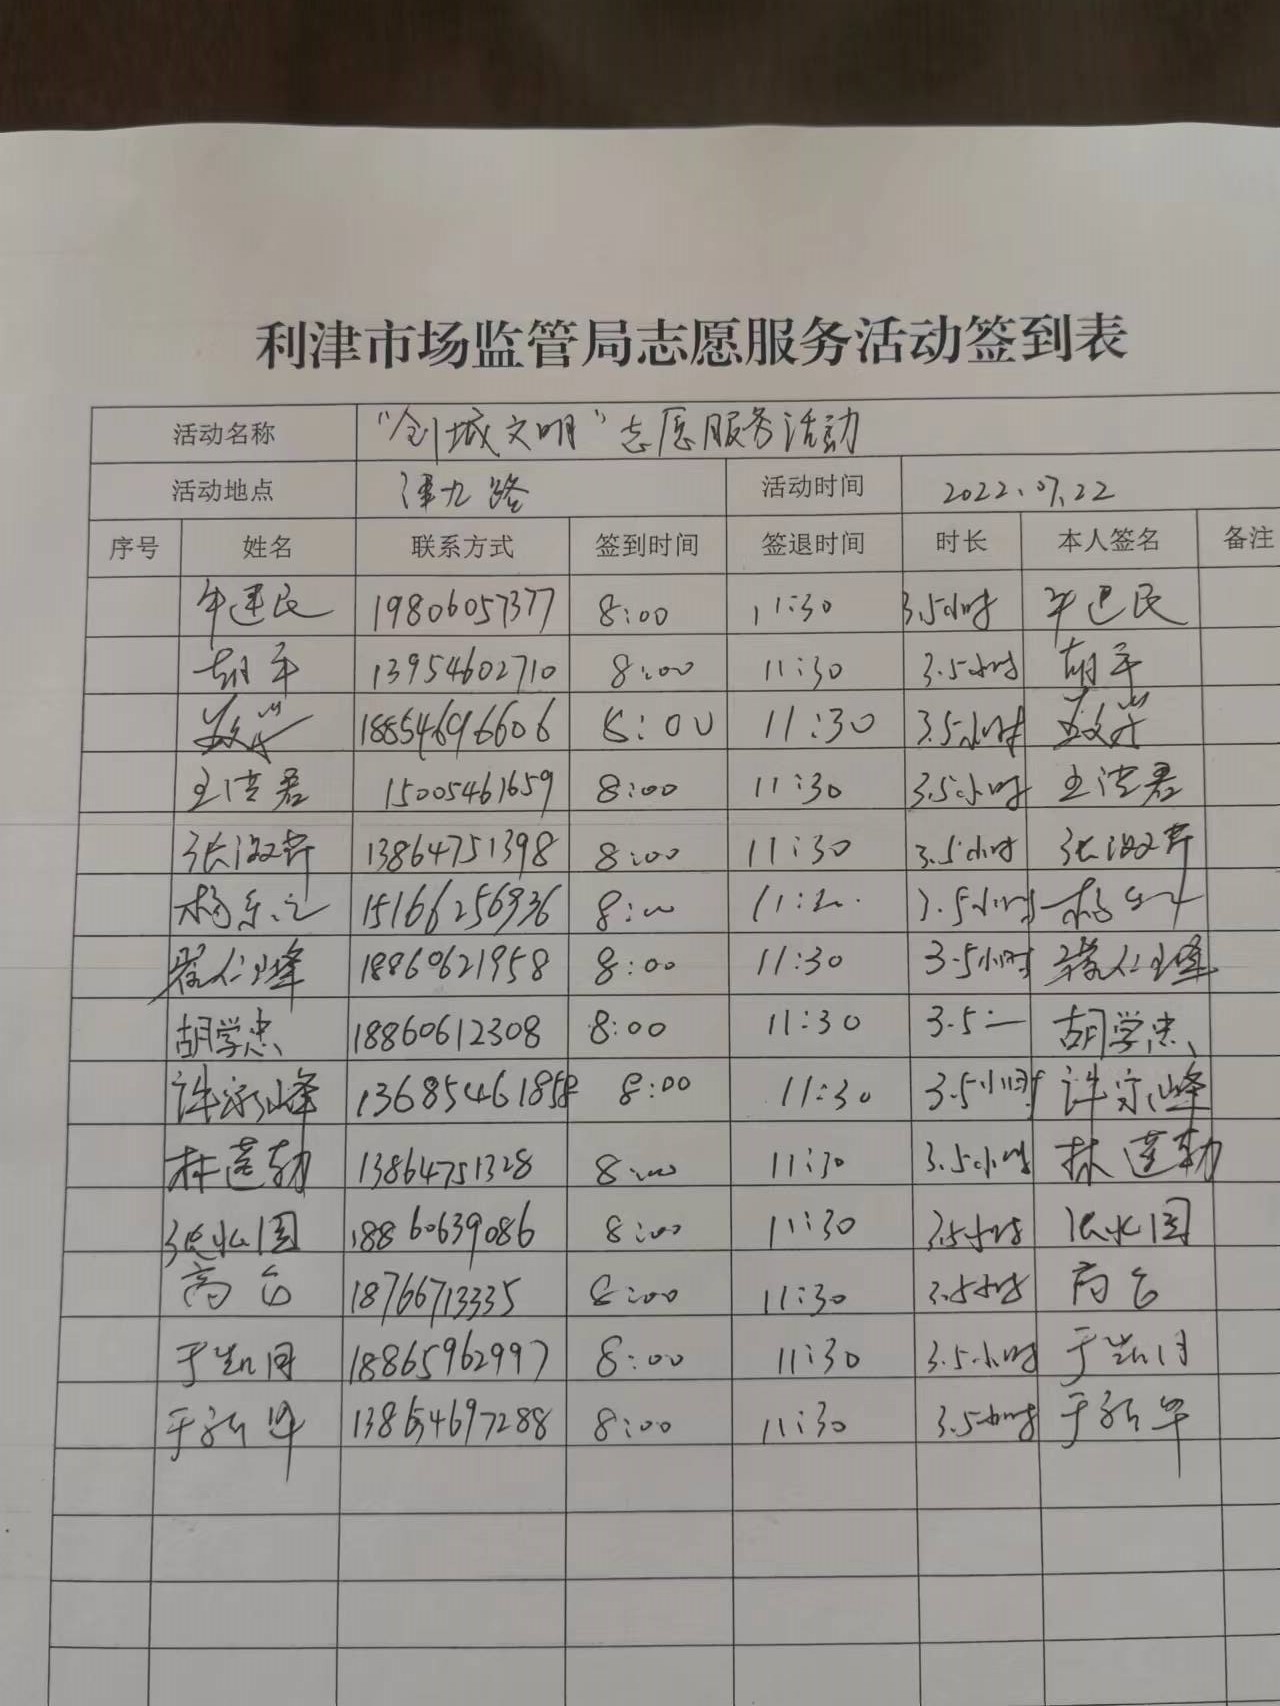 利津市场监管局志愿服务活动签到表
活动名称 "创城文明"志愿服务活动
活动地点 津九路 活动时间 2022.07.22
序号 姓名 联系方式 签到时间 签退时间 时长 本人签名 备注
牟建民 19806057377 8:00 11:30 3.5小时 牟建民
胡平 13954602710 8:00 11:30 3.5小时 胡平
18854696606 8:00 11:30 3.5小时
王洁君 15005461659 8:00 11:30 3.5小时 王洁君
张淑芹 13864751398 8:00 11:30 3.5小时 张淑芹
杨 15166256936 8:00 3.5小时 杨
18860621958 8:00 11:30 3.5小时
胡学忠 18860612308 8:00 11:30 3.5 胡学忠
许永峰 1368546185 8:00 11:30 3.5小时 许永峰
林莲勃 13864751328 8:00 11:30 3.5小时 林莲勃
张水国 18860639086 8:00 11:30 3.5小时 张水国
高台 18766713335 8:00 11:30 3.5小时 高台
于凯月 18865962997 8:00 11:30 3.5小时 于凯月
于 13854697288 8:00 11:30 3.5小时 于